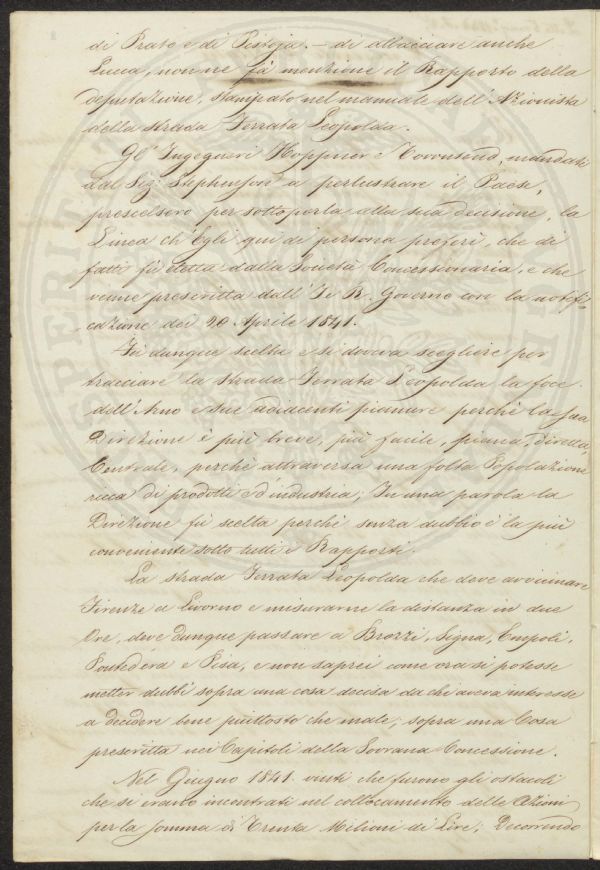 di Prato e di Pistoja. — di allacciare anche
Lucca, non ne fà menzione il Rapporto della
deputazione, stampato nel manuale dell'Azionista
della strada Ferrata Leopolda.
Gl'Ingegneri Hoppner e mandati
dal Sig. Stephenson a perlustrare il Paese,
prescelsero per sottoporla alla sua decisione, la
Linea ch'Egli qui di persona preferì, che di
fatti fù eletta dalla Società Concessionaria, e che
venne prescritta dall'I e R. Governo con la notifi-
cazione dei 20 Aprile 1841.
Fù dunque scelta e si doveva scegliere per
tracciare la strada Ferrata Leopolda la foce
dell'Arno e sue adiacenti pianure perchè la sua
Direzione è più breve, più facile, pianca, diretta,
Centrale, perchè attraversa una folta Popolazione
ricca di prodotti e d'industria; In una parola la
Direzione fù scelta perchè senza dubbio è la più
conveniente sotto tutti i Rapporti.
La strada Ferrata Leopolda che deve avvicinare
Firenze a Livorno e misurarne la distanza in due
Ore, deve dunque passare a Brozzi, Signa, Empoli,
Pontedera e Pisa, e non saprei come ora si potesse
metter dubbi sopra una cosa decisa da chi aveva interesse
a decidere bene piuttosto che male, sopra una Cosa
prescritta nei Capitoli della Sovrana Concessione.
Nel Giugno 1841 vinti che furono gli ostacoli
che si erano incontrati nel collocamento delle Azioni
per la somma di Trenta Milioni di Lire; Decorrendo
ASPERITAT